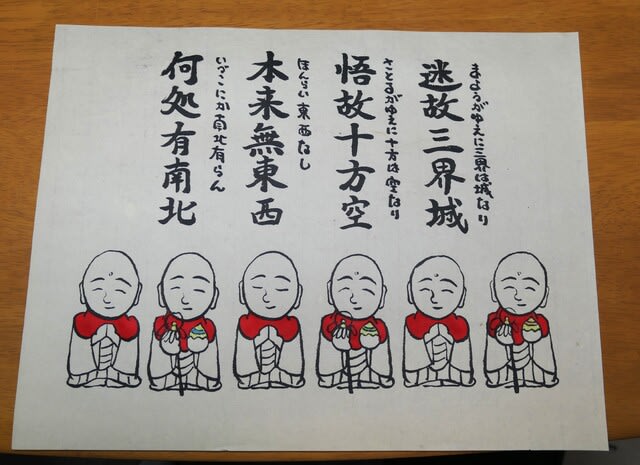 まようがゆえに三界は城なり
迷故三界城
さとるがゆえに十方は空なり
悟故十方空
ほんらい東西なし
本来無東西
いづこにか南北有らん
何処有南北